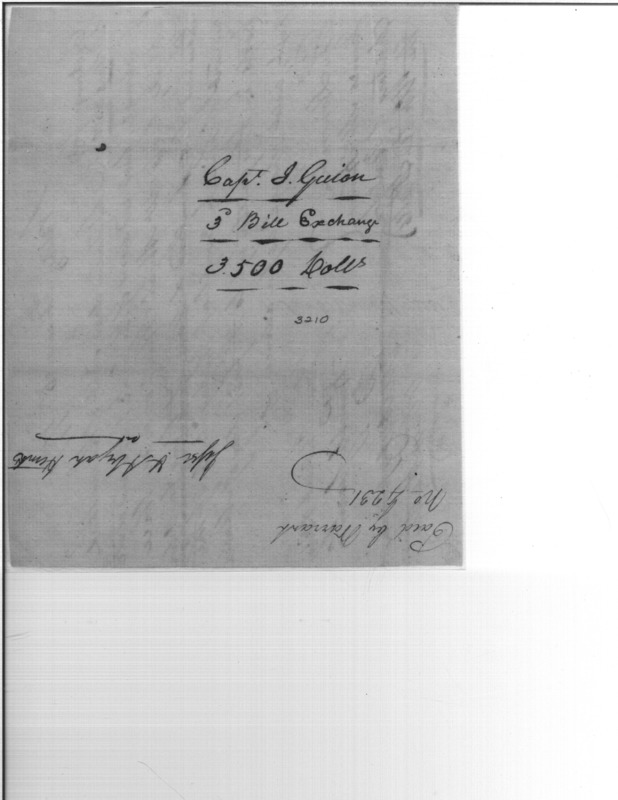 Capt. I. Guion
3d Bill Exchange
3.500 Dolls
3210
Paid by Warrant
No 4,231
Jesse & Abijah Hunt